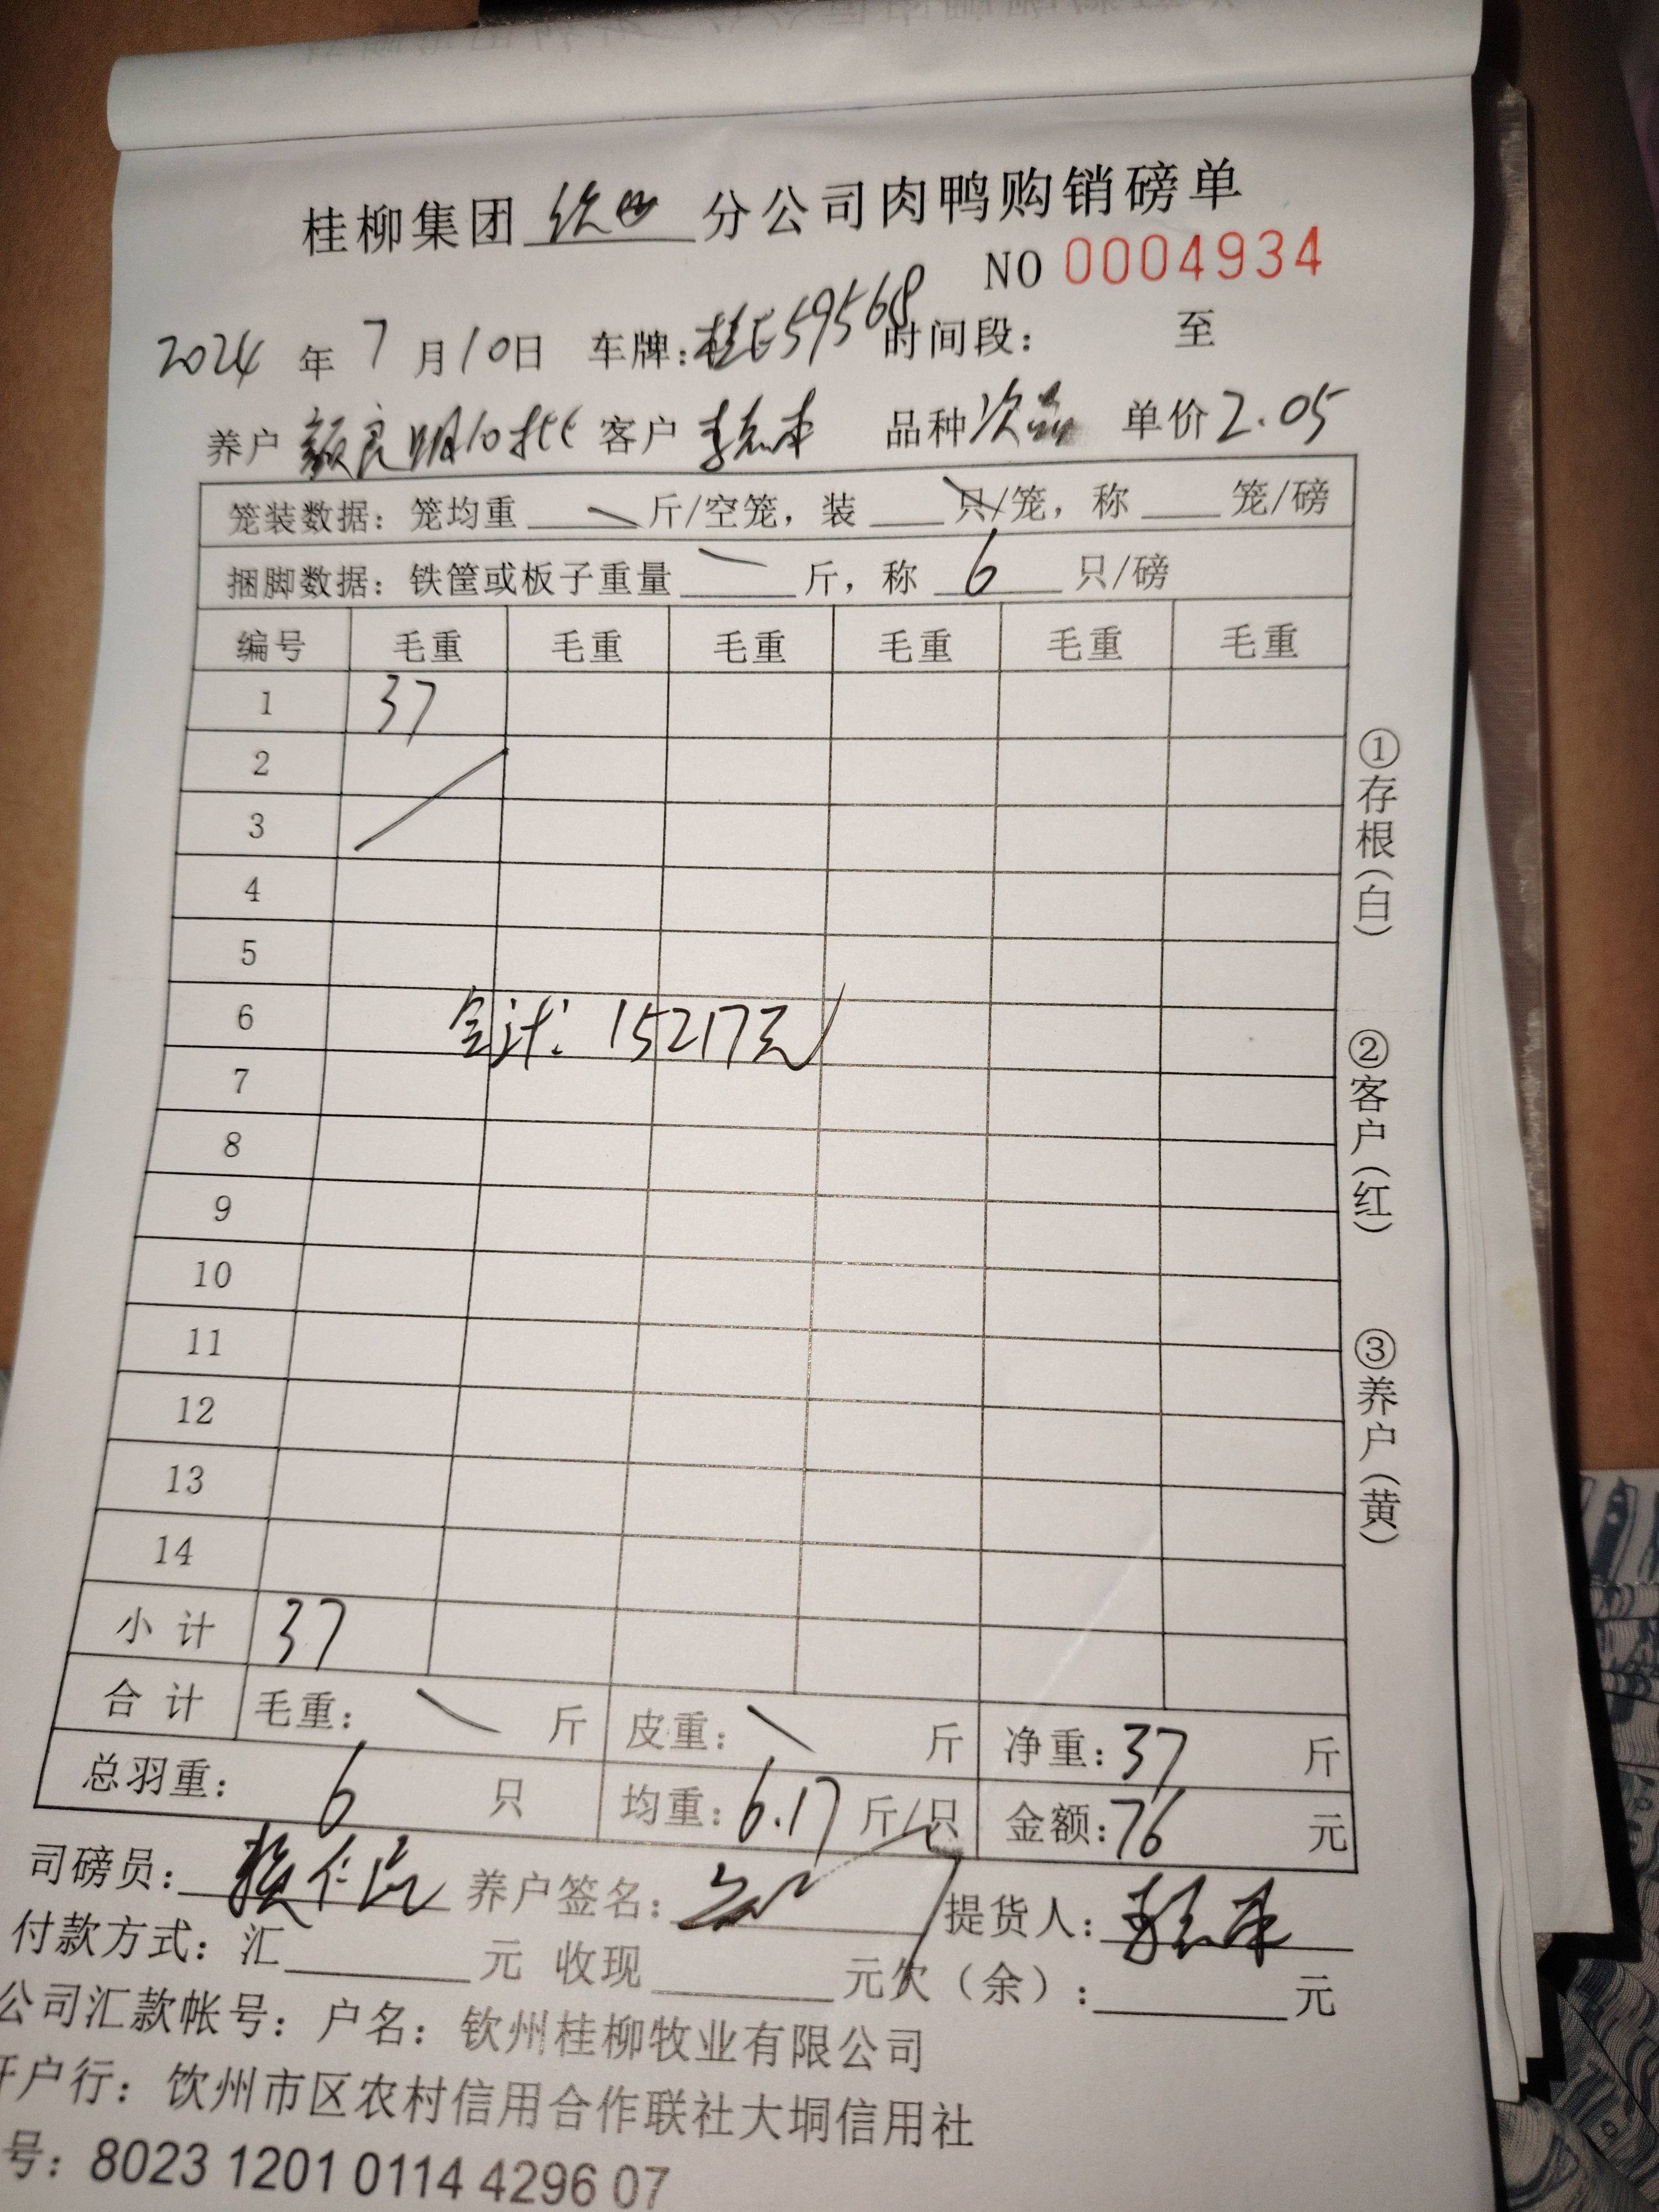 桂柳集团 钦州 分公司肉鸭购销磅单
NO 0004934
2024 年 7 月 10 日 车牌:桂E59568 时间段: 至
养户 颜良明10批 客户 李志本 品种 次品 单价 2.05
笼装数据: 笼均重 斤/空笼, 装 只/笼, 称 笼/磅
捆脚数据: 铁筐或板子重量 斤, 称 6 只/磅
编号 毛重 毛重 毛重 毛重 毛重 毛重
1 37
2
3
4
5
6 合计: 15217元
7
8
9
10
11
12
13
14
小计 37
合计 毛重: 斤 皮重: 斤 净重: 37 斤
总羽重: 6 只 均重: 6.17 斤/只 金额: 76 元
司磅员: 养户签名: 提货人: 李志本
付款方式: 汇 元 收现 元欠(余): 元
公司汇款帐号: 户名: 钦州桂柳牧业有限公司
开户行: 钦州市区农村信用合作联社大垌信用社
号: 8023 1201 0114 4296 07
①存根(白)
②客户(红)
③养户(黄)